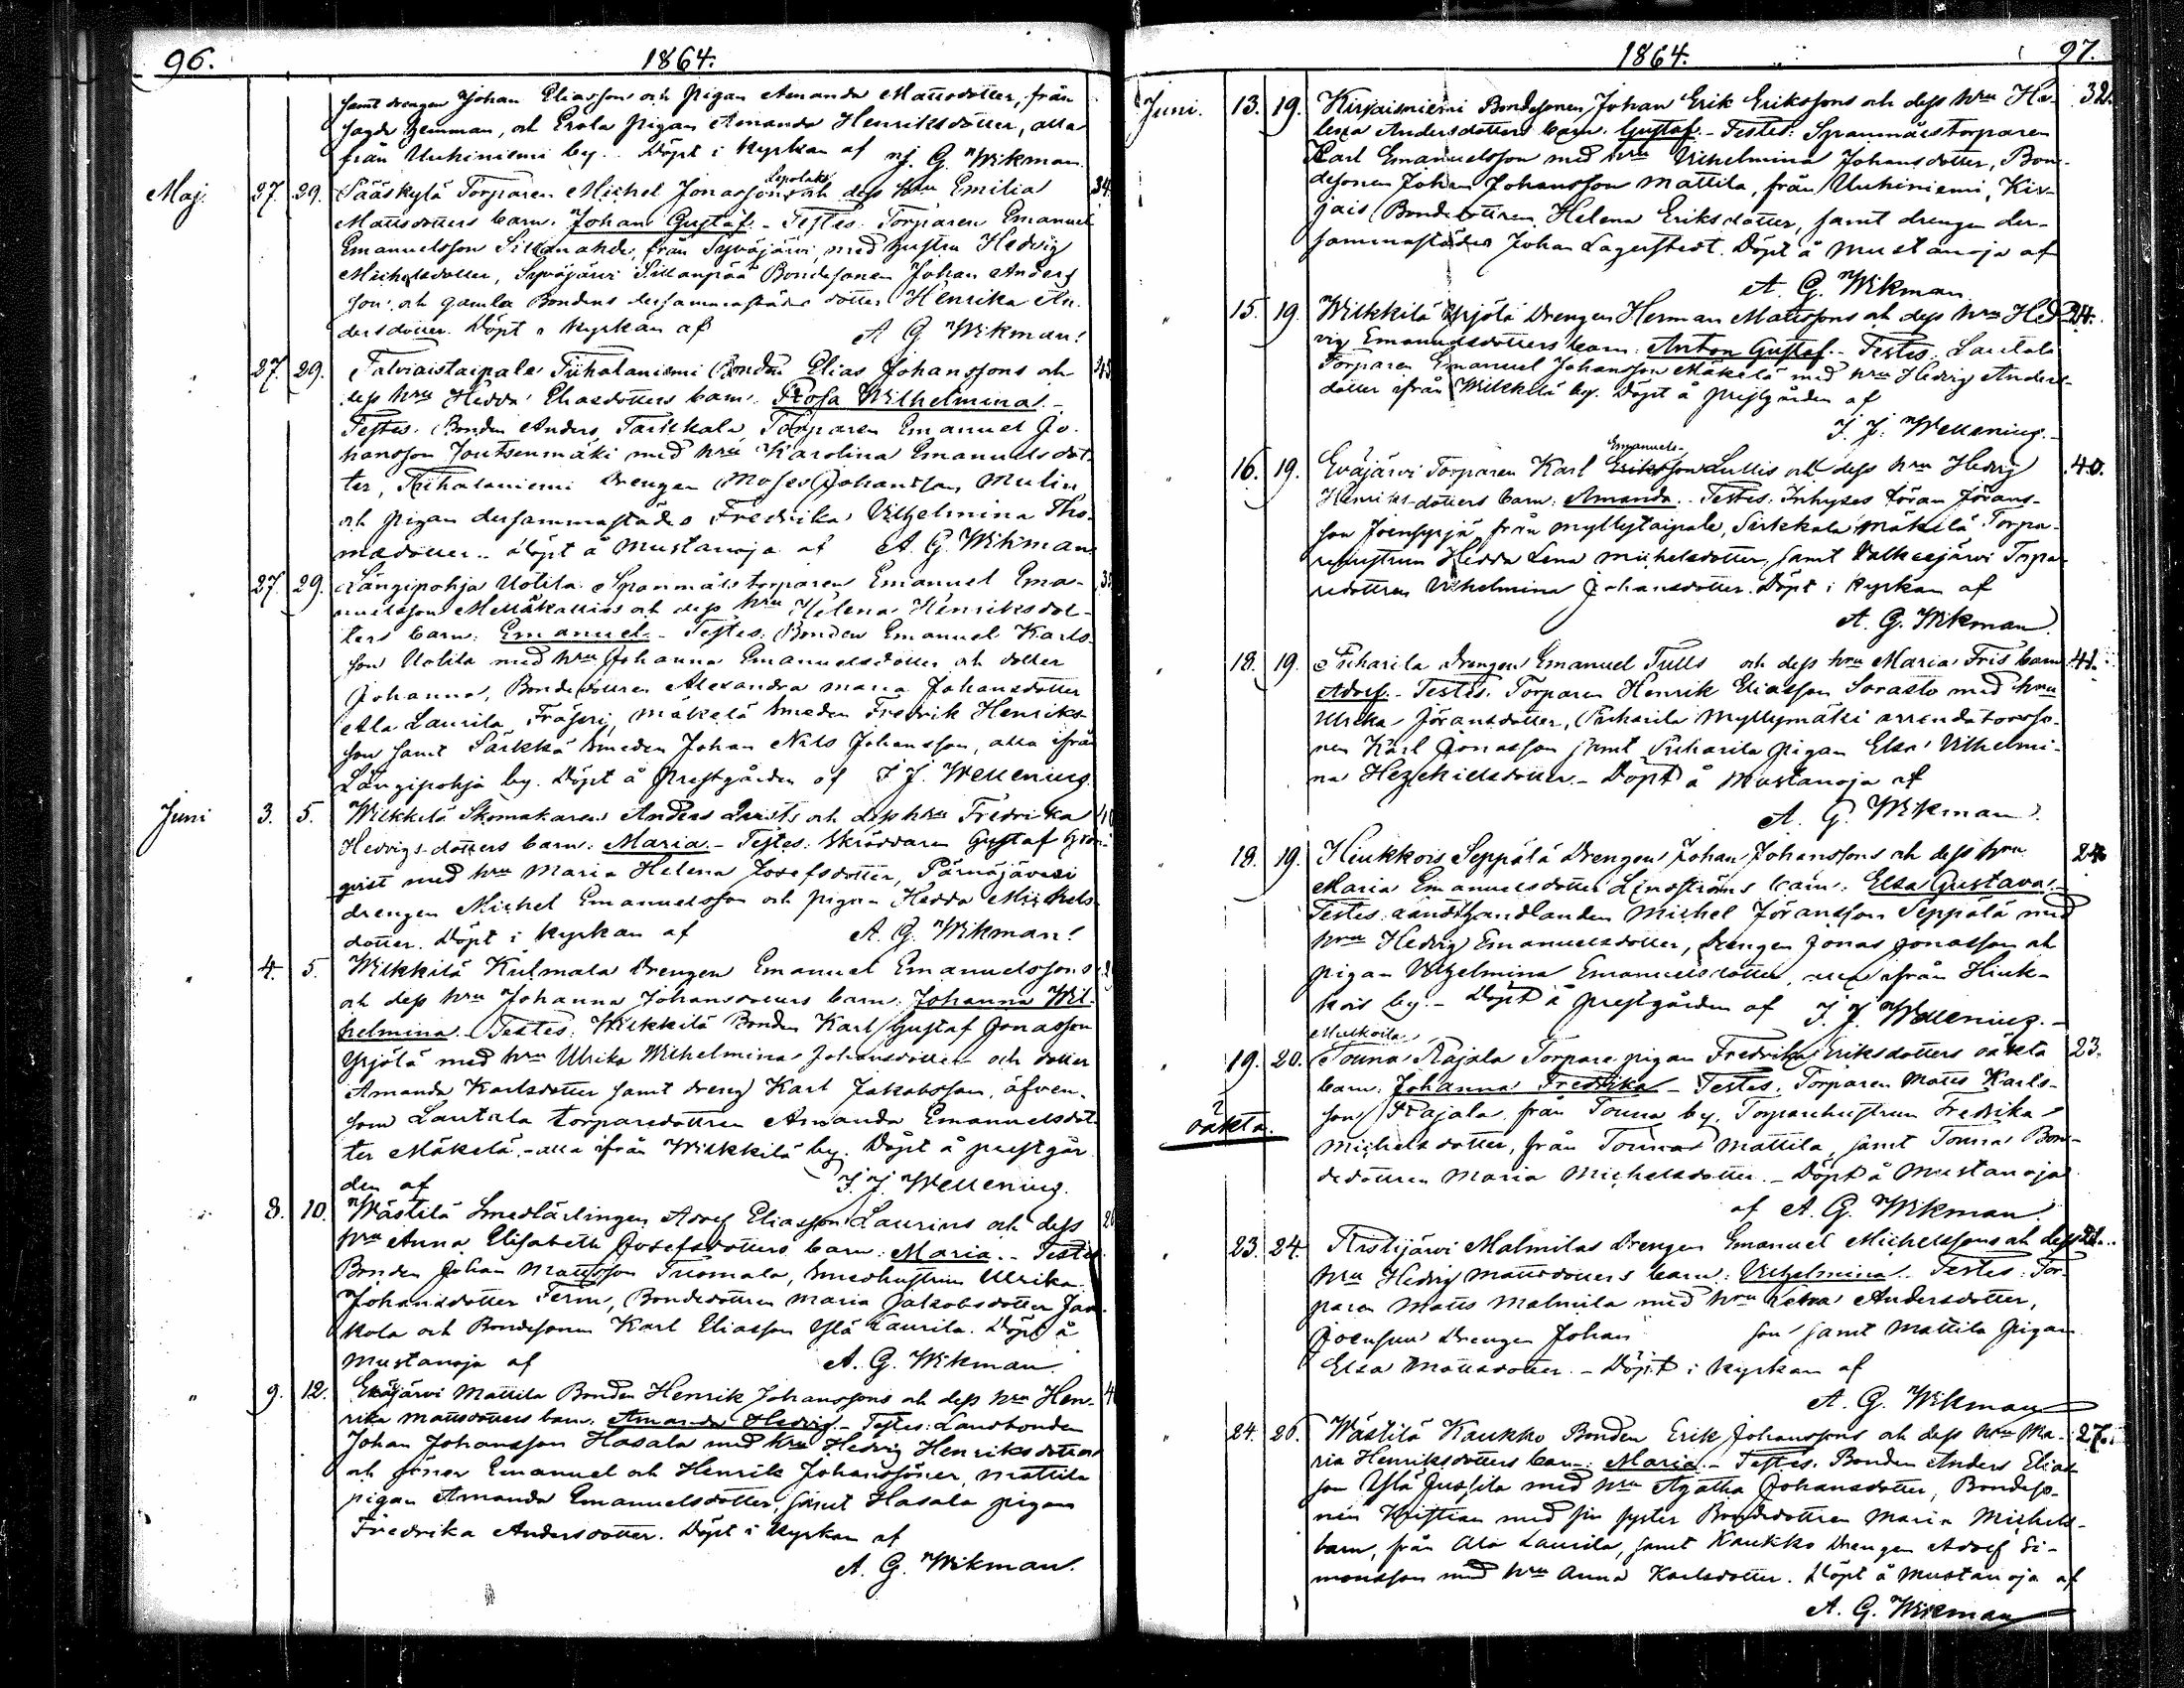 96.
1864.
samt drengen Johan Eliasson och pigan Amanda Mattsdotter, från
sagde hemman, och Eräla pigan Amanda Henriksdotter, alla
från Uuhiniemi by. Döpt i kyrkan af A. G. Wikman.
Maj. 27. 29. Sääskylä Torparen Michel Jonassons och dess hru Emilia 34.
Mattsdotters barn: Johan Gustaf. - Testes: Torparen Emanuel
Emanuelsson från Syväjärvi, med hustru Hedvig
Michelsdotter, Syväjärvi Sillanpää Bondesonen Johan Anders
son och gamla Bondens dersammastädes dotter Henrika An-
dersdotter. Döpt i kyrkan af A. G. Wikman.
27. 29. Talviaistaipale Tiihalaniemi Bonden Elias Johanssons och
dess hru Hedda Eliasdotters barn: Rosa Wilhelmina. -
Testes: Bonden Anders Tarkkala, Torparen Emanuel Jo-
hansson Joutsenmäki med hru Karolina Emanuelsdot-
ter, Tiihalaniemi Drengen Moses Johansson Mulin
och pigan dersammastädes Fredrika Vilhelmina Tho-
masdotter. Döpt å Mustanoja af A. G. Wikman
27. 29. Längipohja Uotila Spanmålstorparen Emanuel Ema-
nuelsson och dess hru Helena Henriksdot-
ters barn: Emanuel. - Testes: Bonden Emanuel Karls-
son Uotila med hru Johanna Emanuelsdotter och dotter
Johanna, Bondedottren Alexandra Maria Johansdotter
Ala Laurila, Mäkelä Smeden Fredrik Henriks-
son samt Särkkä Smeden Johan Nils Johansson, alla ifrån
Längipohja by. Döpt å Prestgården af J. J. Wellenius.
Juni 3. 5. Wilkkilä Skomakaren Anders Qvists och dess hru Fredrika
Hedvigs-dotters barn: Maria. - Testes: Skräddaren Gustaf Grön-
qvist med hru Maria Helena Josefsdotter, Pärnäjärvi
drengen Michel Emanuelsson och pigan Hedda Michels-
dotter. Döpt i kyrkan af A. G. Wikman.
" 4. 5. Wilkkilä Kulmala Drengen Emanuel Emanuelssons
och dess hru Johanna Johansdotters barn: Johanna Wil-
helmina. Testes: Wilkkilä Bonden Karl Gustaf Jonasson
Yrjölä med hru Ulrika Wilhelmina Johansdotter och dotter
Amanda Karlsdotter samt dreng Karl Jakobsson, äfven-
som Lautala torparedottren Amanda Emanuelsdot-
ter Mäkelä, - alla ifrån Wilkkilä by. Döpt å prestgår
den af J. J. Wellenius.
" 8. 10. Wästilä Smedlärlingen Adolf Eliasson Laurins och dess
hru Anna Elisabeth Josefsdotters barn: Maria. - Testes:
Bonden Johan Mattsson Tuomala, Smedhustrun Ulrika
Johansdotter Ferm, Bondedottren Maria Jakobsdotter
och Bondesonen Karl Eliasson Ylä Laurila. Döpt å
Mustanoja af A. G. Wikman.
" 9. 12. Eväjärvi Mattila Bonden Henrik Johanssons och dess hru Hen-
rika Mattsdotters barn: Amanda Hedvig. - Testes: Landbonden
Johan Johansson Hasala med hru Hedvig Henriksdotter
och söner Emanuel och Henrik Johanssöner, Mattila
pigan Amanda Emanuelsdotter, samt Hasala pigan
Fredrika Andersdotter. Döpt i kyrkan af
A. G. Wikman.
1864.
97.
Juni. 13. 19. Kirjaisniemi Bondesonen Johan Erik Erikssons och dess hru He- 32.
lena Andersdotters barn: Gustaf. - Testes: Spanmålstorparen
Karl Emanuelsson med hru Vilhelmina Johansdotter, Bon-
desonen Johan Johansson Mattila, från Uuhiniemi, Kir-
jais Bondedottren Helena Eriksdotter, samt drengen der-
sammastädes Johan Lagerstedt. Döpt å Mustanoja af
A. G. Wikman
" 15. 19. Wilkkilä Yrjölä Drengen Herman Mattssons och dess hru Hed- 24.
vig Emanuelsdotters barn: Anton Gustaf. - Testes: Lautala
Torparen Emanuel Johansson Mäkelä med hru Hedvig Anders-
dotter ifrån Wilkkilä by. Döpt å prestgården af
J. J. Wellenius. -
Emanuels-
" 16. 19. Eväjärvi Torparen Karl Eriksson Lullis och dess hru Hedvig 40.
Henriks-dotters barn: Amanda. - Testes: Inhyses Göran Görans-
son Joensyrjä från Myllytaipale, Sirkkala Mäkelä Torpa-
rehustrun Hedda Lena Michelsdotter, samt Valkeajärvi Torpa-
redottren Vilhelmina Johansdotter. Döpt i kyrkan af
A. G. Wikman.
" 18. 19. Tiiharila Drengen Emanuel Tulls och dess hru Maria Fris barn 41.
Adolf. - Testes: Torparen Henrik Eliasson Sorasto med hru
Ulrika Göransdotter, Tiiharila Myllymäki arrendatorsso-
nen Karl Jonasson samt Tiiharila pigan Elsa Vilhelmi-
na Hezekielsdotter. - Döpt å Mustanoja af
A. G. Wikman.
" 18. 19. Hiukkois Seppälä Drengen Johan Johanssons och dess hru 24.
Maria Emanuelsdotter Lindströms barn: Elsa Gustava. -
Testes: Landthandlanden Michel Göransson Seppälä med
hru Hedvig Emanuelsdotter, drengen Jonas Jonasson och
pigan Vilhelmina Emanuelsdotter, alla ifrån Hiuk-
kois by. - Döpt å prestgården af J. J. Wellenius. -
Mutkoila
" 19. 20. Touna Rajala Torpare pigan Fredrika Eriksdotters oäkta 23.
oäkta. barn: Johanna Fredrika - Testes: Torparen Matts Karls-
son Rajala från Touna by, Torparehustrun Fredrika
Michelsdotter, från Touna Mattila, samt Touna Bon-
dedottren Maria Michelsdotter. - Döpt å Mustanoja
af A. G. Wikman.
" 23. 24. Ristijärvi Malmilas Drengen Emanuel Michelssons och dess 21.
hru Hedvig Mattsdotters barn: Vilhelmina. Testes: Tor-
paren Matts Malmila med hru Lena Andersdotter,
Joensuu Drengen Johan son samt Mattila pigan
Elsa Mattsdotter. - Döpt i kyrkan af
A. G. Wikman
" 24. 26. Wästilä Kaukko Bonden Erik Johanssons och dess hru Ma- 27.
ria Henriksdotters barn: Maria. - Testes: Bonden Anders Elias-
son Ylä Jussila med hru Agatha Johansdotter, Bondeso-
nen Kristian med sin syster Bondedottren Maria Michels-
barn, från Ala Laurila, samt Kaukko Drengen Adolf Si-
monsson med hru Anna Karlsdotter. Döpt å Mustanoja af
A. G. Wikman